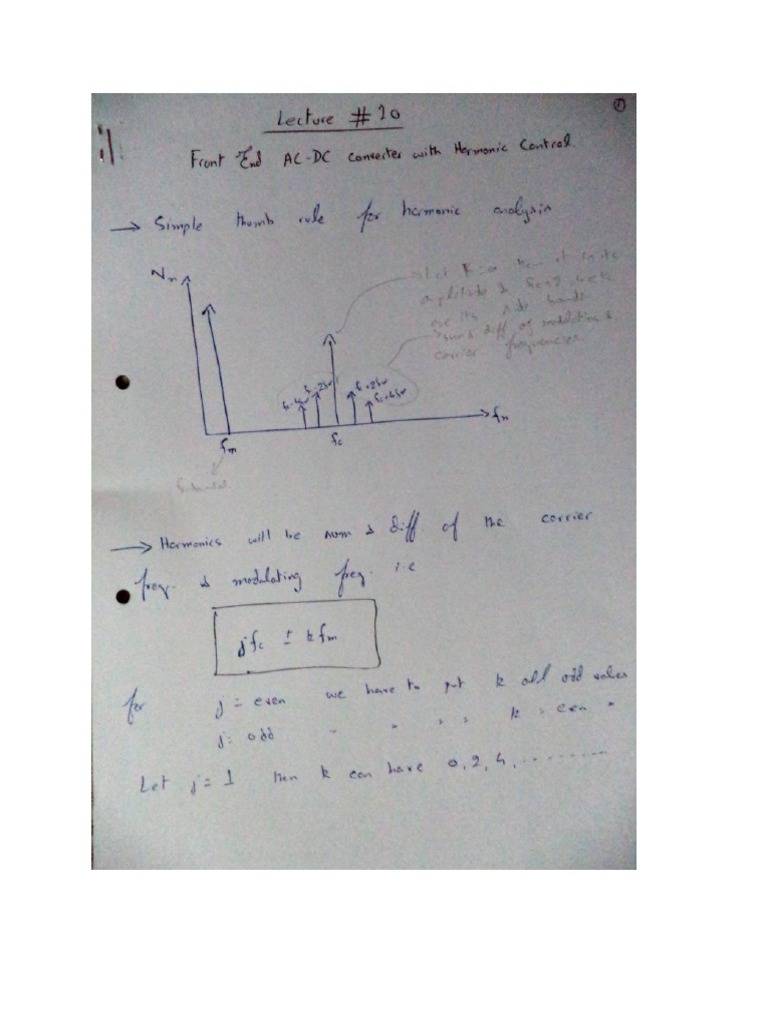 ①
Lecture # 20
Front End AC-DC Converter with Harmonic Control.
→ Simple thumb rule for harmonic analysis
→ Let K=0 then it is its
amplitude &
are its side bands
sum & diff of modulating &
carrier frequencies
Vn
fc-4fm fc-2fm fc+2fm fc+4fm
fm fc fn
→ Harmonics will be sum & diff. of the carrier
freq. & modulating freq. i.e
jfc ± kfm
for j = even we have to put k all odd values
j = odd " " " " k " even "
Let j = 1 then k can have 0, 2, 4, ---------